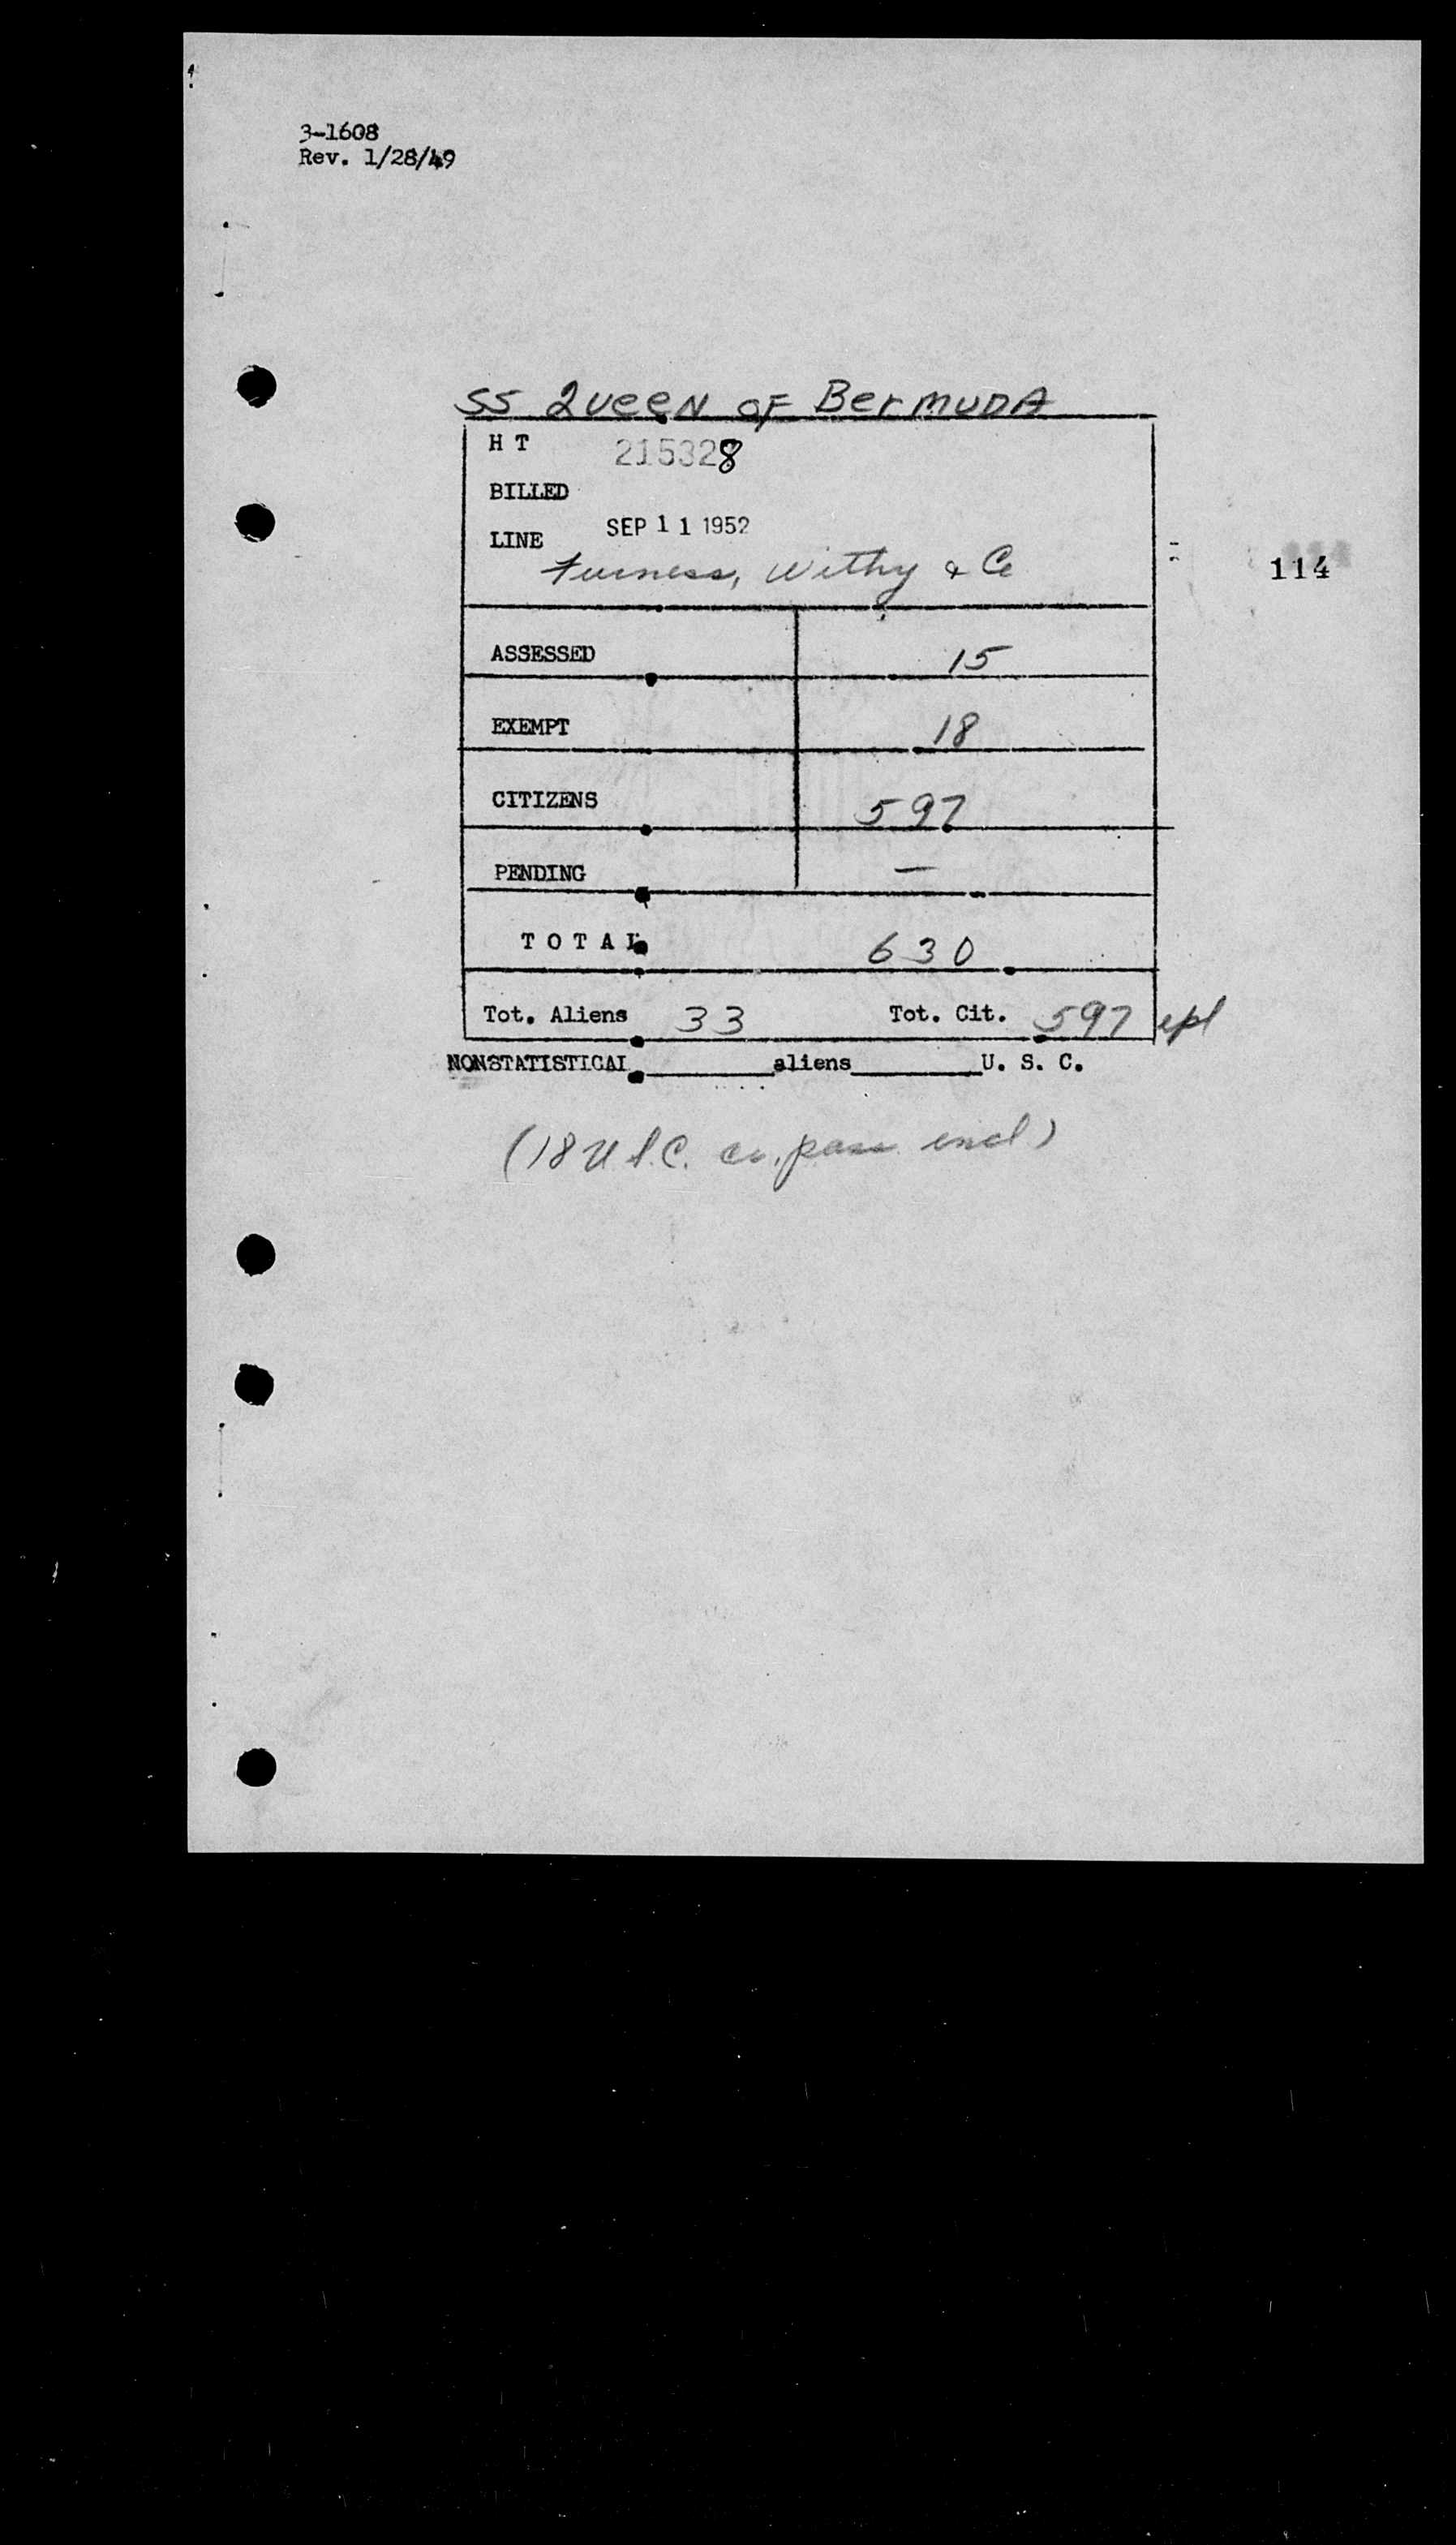 3-1608
Rev. 1/28/49
SS QUEEN OF BERMUDA
H T 215328
BILLED
SEP 11 1952
LINE
Furness, Withy & Co
114
ASSESSED 15
EXEMPT 18
CITIZENS 597
PENDING —
TOTAL 630
Tot. Aliens 33 Tot. Cit. 597
NONSTATISTICAL ________aliens________U. S. C.
(18 U.S.C. pass incl)